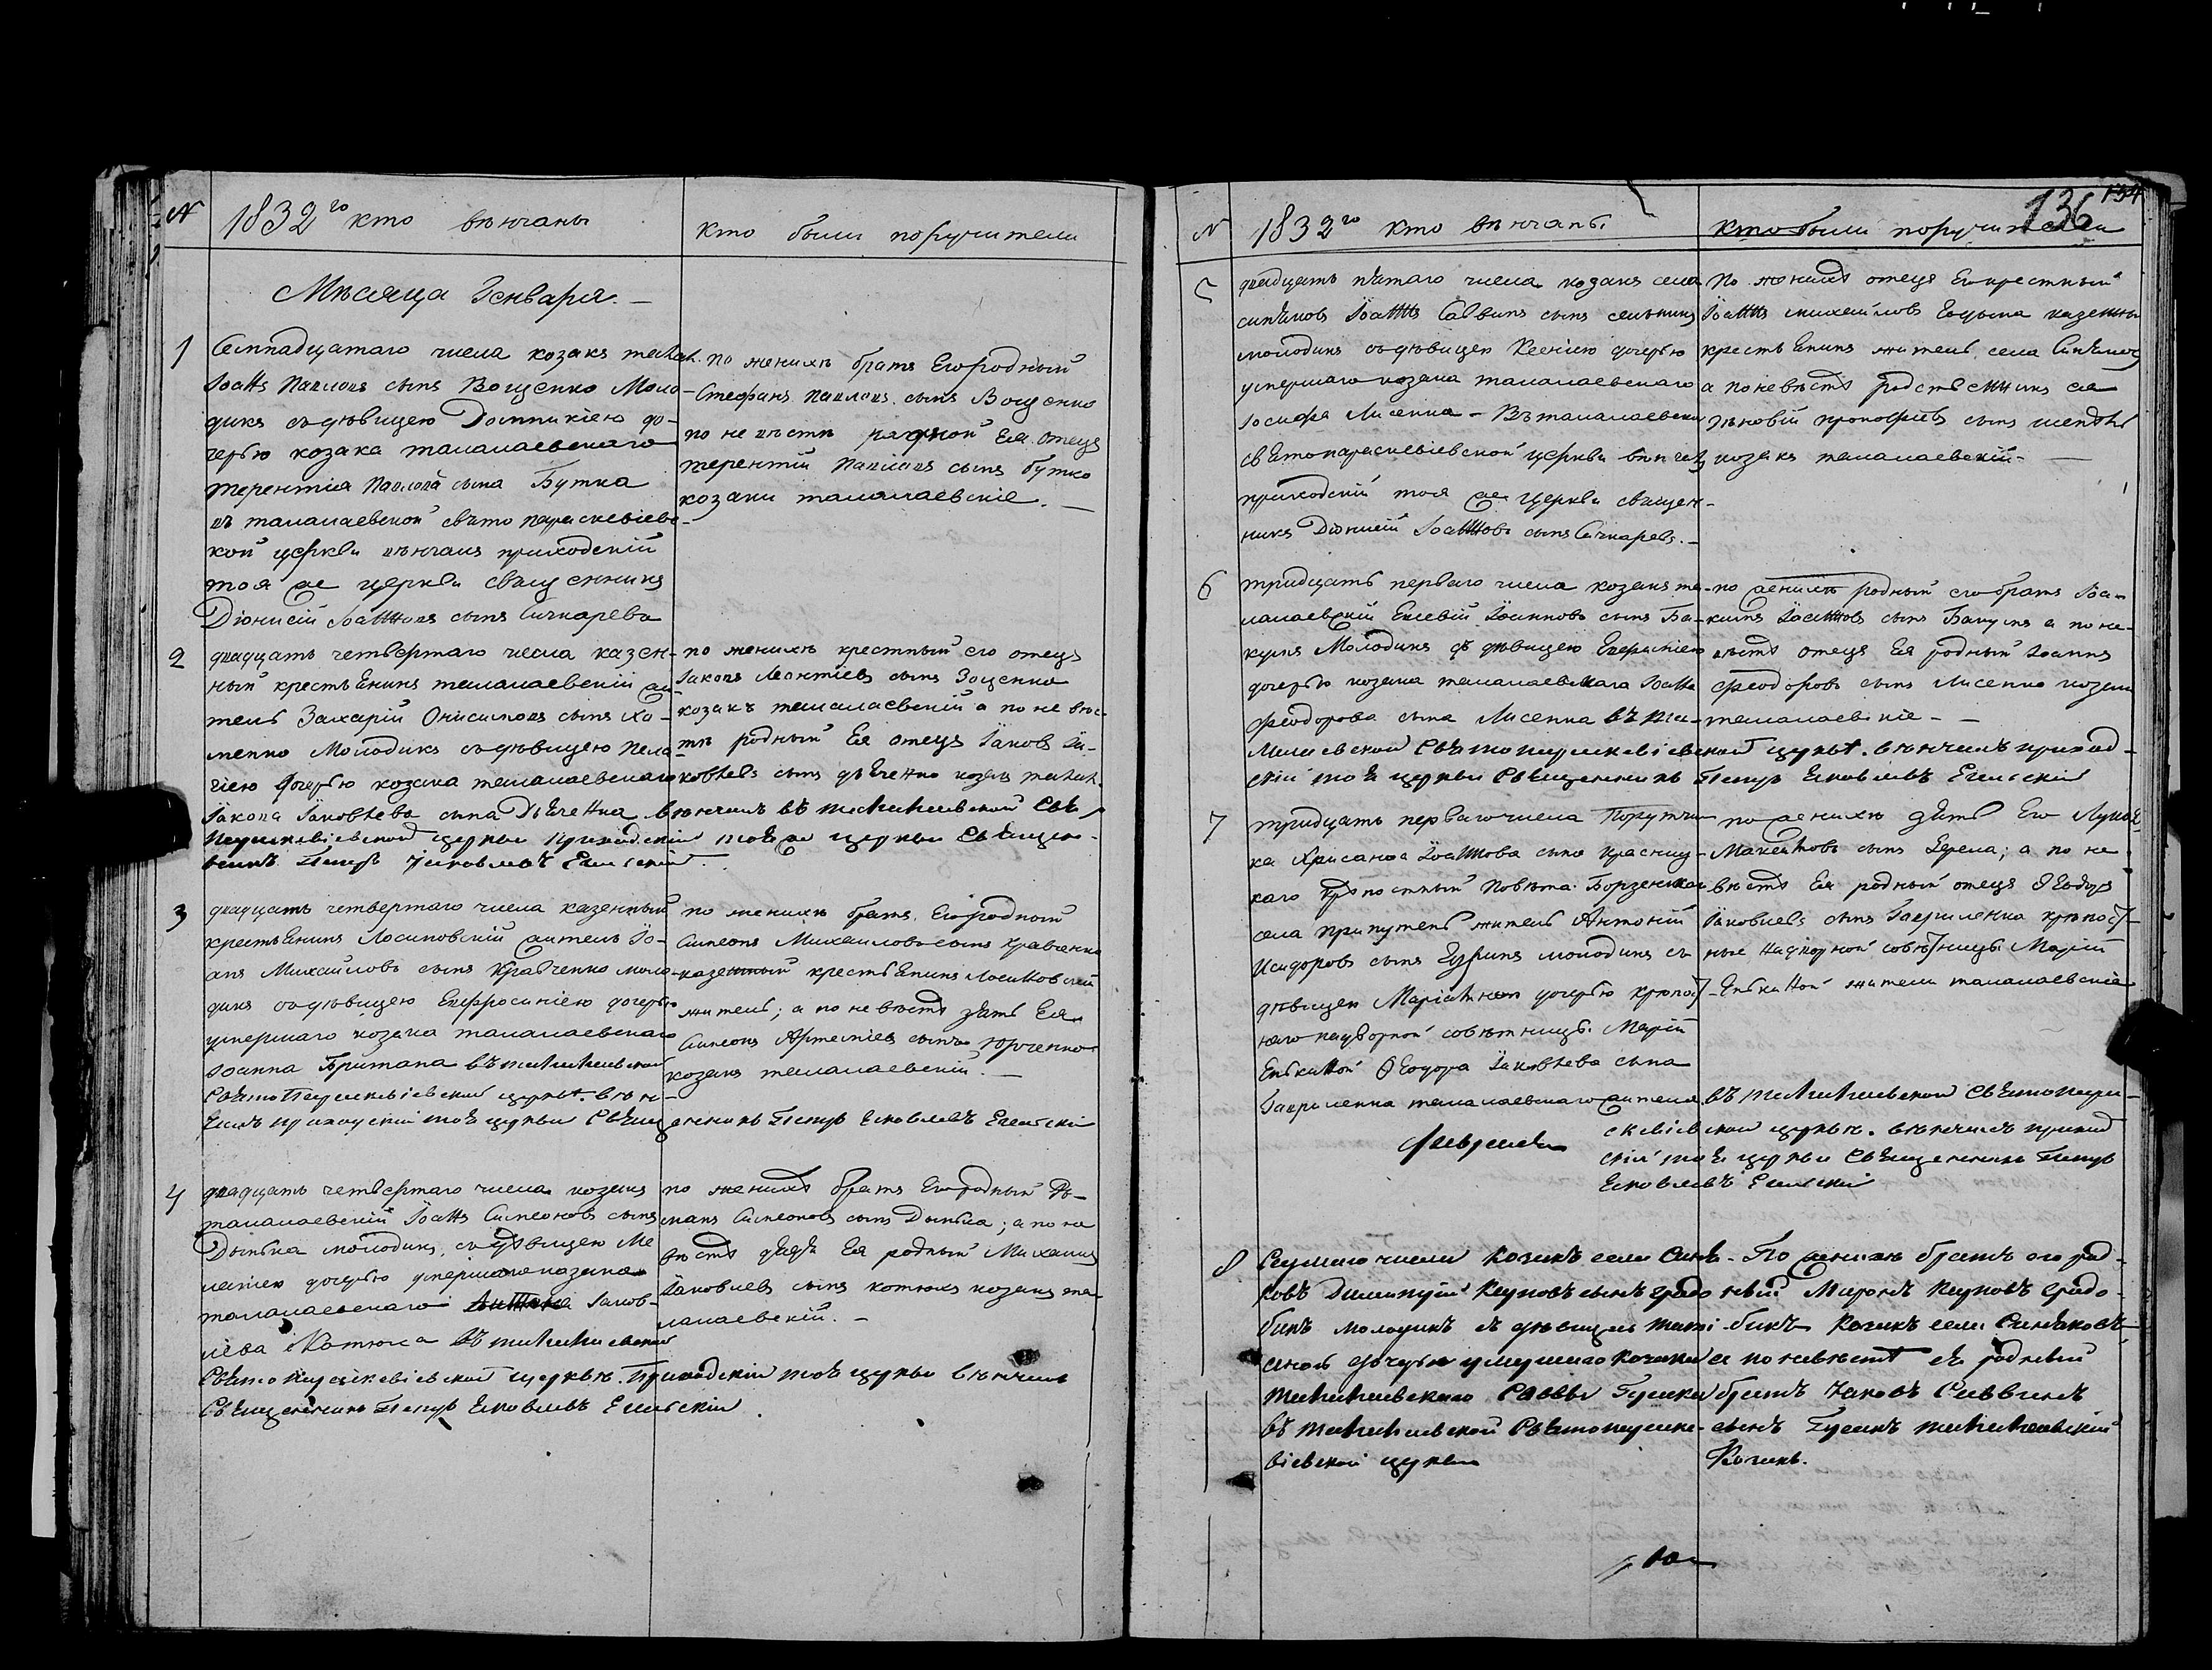 N
1832го кто вѣнчаны
кто были поручители
Мѣсяца Генваря. —
1
Семнадцатаго числа козакъ талал.
Іоаннъ Павловъ сынъ Вощенко Моло-
дикъ съ дѣвицею Домникіею до-
черью козака талалаевскаго
терентія Павлова сына Бутка
въ талалаевской свято параскевіевс-
кой церкви вѣнчалъ приходскій
тоя же церкви священникъ
Діонисій Іоанновъ сынъ Сичкаревъ
по женихѣ братъ Его родный
Стефанъ Павловъ сынъ Вощенко
по невѣстѣ родной Ея отецъ
терентій Павловъ сынъ бутко
козаки талалаевскіе. —
2
двадцать четвертаго числа казен-
ный крестьянинъ талалаевскій жи-
тель Захарій Онисимовъ сынъ Хо-
менко Молодикъ съ дѣвицею Пела-
гіею дочерью козака талалаевскаго
Іакова Іаковлева сына Дьяченка вѣнчалъ въ талалаевской свято
Параскевіевской церкви приходскій тоя же церкви священ-
никъ Петръ Іаковлевъ
по женихѣ крестный его отецъ
Іаковъ Леонтіевъ сынъ Зощенко
козакъ талалаевскій а по невѣс-
тѣ родный Ея отецъ Іаковъ Іа-
ковлевъ сынъ дьяченко козакъ талал.
3
двадцать четвертаго числа казенный
крестьянинъ Лосиновскій житель Іо-
анъ Михайловъ сынъ Кравченко моло-
дикъ съ дѣвицею Евфросиніею дочерью
умершаго козака талалаевскаго
Іоанна Британа въ талалаевской
свято Параскевіевской церкв. вѣн-
чалъ приходскій тоя церкви священникъ Петръ Яковлевъ
по женихѣ братъ Его родной
Симеонъ Михаиловъ сынъ Кравченко
казенный крестьянинъ Лосиновскій
житель; а по невѣстѣ зять Ея
Симеонъ Артеміевъ сынъ Юрченко
козакъ талалаевскій. —
4
двадцать четвертаго числа козакъ
талалаевскій Іоаннъ Симеоновъ сынъ
Дымька молодикъ, съ дѣвицею Ме-
ланіею дочерью умершаго козака
талалаевскаго Іаков-
лева Котюха въ талалаевской
Свято параскевіевской церкви. Приходскій тоя церкви вѣнчалъ
Священникъ Петръ Яковлевъ
по женихѣ братъ Его родный Ро-
манъ Симеоновъ сынъ Дымька; а по не-
вѣстѣ дядя Ея родный Михаилъ
Іаковлевъ сынъ котюхъ козакъ та-
лалаевскій. —
N
1832го кто вѣнчаны
кто были поручители
136
5
двадцать пятаго числа козакъ села
синяковъ Іоаннъ Саввинъ сынъ
молодикъ съ дѣвицею Ксеніею дочерью
умершаго козака талалаевскаго
Іосифа Лисенка — Въ талалаевской
святопараскевіевской церкви вѣнчалъ
приходскій тоя же церкви священ-
никъ Діонисій Іоанновъ сынъ Сичкаревъ. —
По женихѣ отецъ Его крестный
Іоаннъ михайловъ казенный
крестьянинъ житель села Синяковъ
а по невѣстѣ родственникъ ея
зѣновій прокофіевъ сынъ
козакъ талалаевскій. —
6
тридцать перваго числа козакъ та-
лалаевскій Евсевій Іоанновъ сынъ Ба-
кунъ Молодикъ съ дѣвицею Евфросиніею
дочерью козака талалаевскаго Іоанна
феодорова сына Лисенка въ та-
лалаевской святопараскевіевской церкв. вѣнчалъ приход-
скій тоя церкви Священникъ Петръ Яковлевъ
по женихѣ родный его братъ Іоа-
кимъ Іоанновъ сынъ Бакунъ а по не-
вѣстѣ отецъ Ея родный Іоаннъ
феодоровъ сынъ Лисенко козаки
талалаевскіе — —
7
тридцать перваго числа Поручи-
ка Хрисанѳа Іоаннова сына Красниц-
каго крѣпостный Повѣта Борзенскаго
села припутень житель Антоній
Исидоровъ сынъ молодикъ съ
дѣвицею Маріанною дочерью крѣпост-
наго надворной совѣтницы Маріи
Ѳеодора Іаковлева сына
Гавриленка талалаевскаго жителя въ талалаевской святопара-
скевіевской церкв. вѣнчалъ приход
скій тоя церкви Священникъ Петръ
Яковлевъ
по женихѣ зять Его Лукья
сынъ; а по не-
вѣстѣ Ея родный отецъ Ѳеодоръ
Іаковлевъ сынъ Гавриленко крѣпост-
ные надворной совѣтницы Маріи
жители талалаевскіе
февраля
8
Седмаго числа козакъ села Синя-
ковъ Димитрій Карповъ сынъ Градо
бикъ молодикъ съ дѣвицею тати-
аною дочерью умершаго козака
талалаевскаго Саввы Гусака
въ талалаевской Святопараске-
віевской церкви
По женихѣ братъ его род-
ный Миронъ Карповъ Градо-
бикъ козакъ села Синяковъ
а по невѣстѣ ея родный
братъ Іаковъ Саввинъ
сынъ Гусакъ талалаевскій
Козакъ.